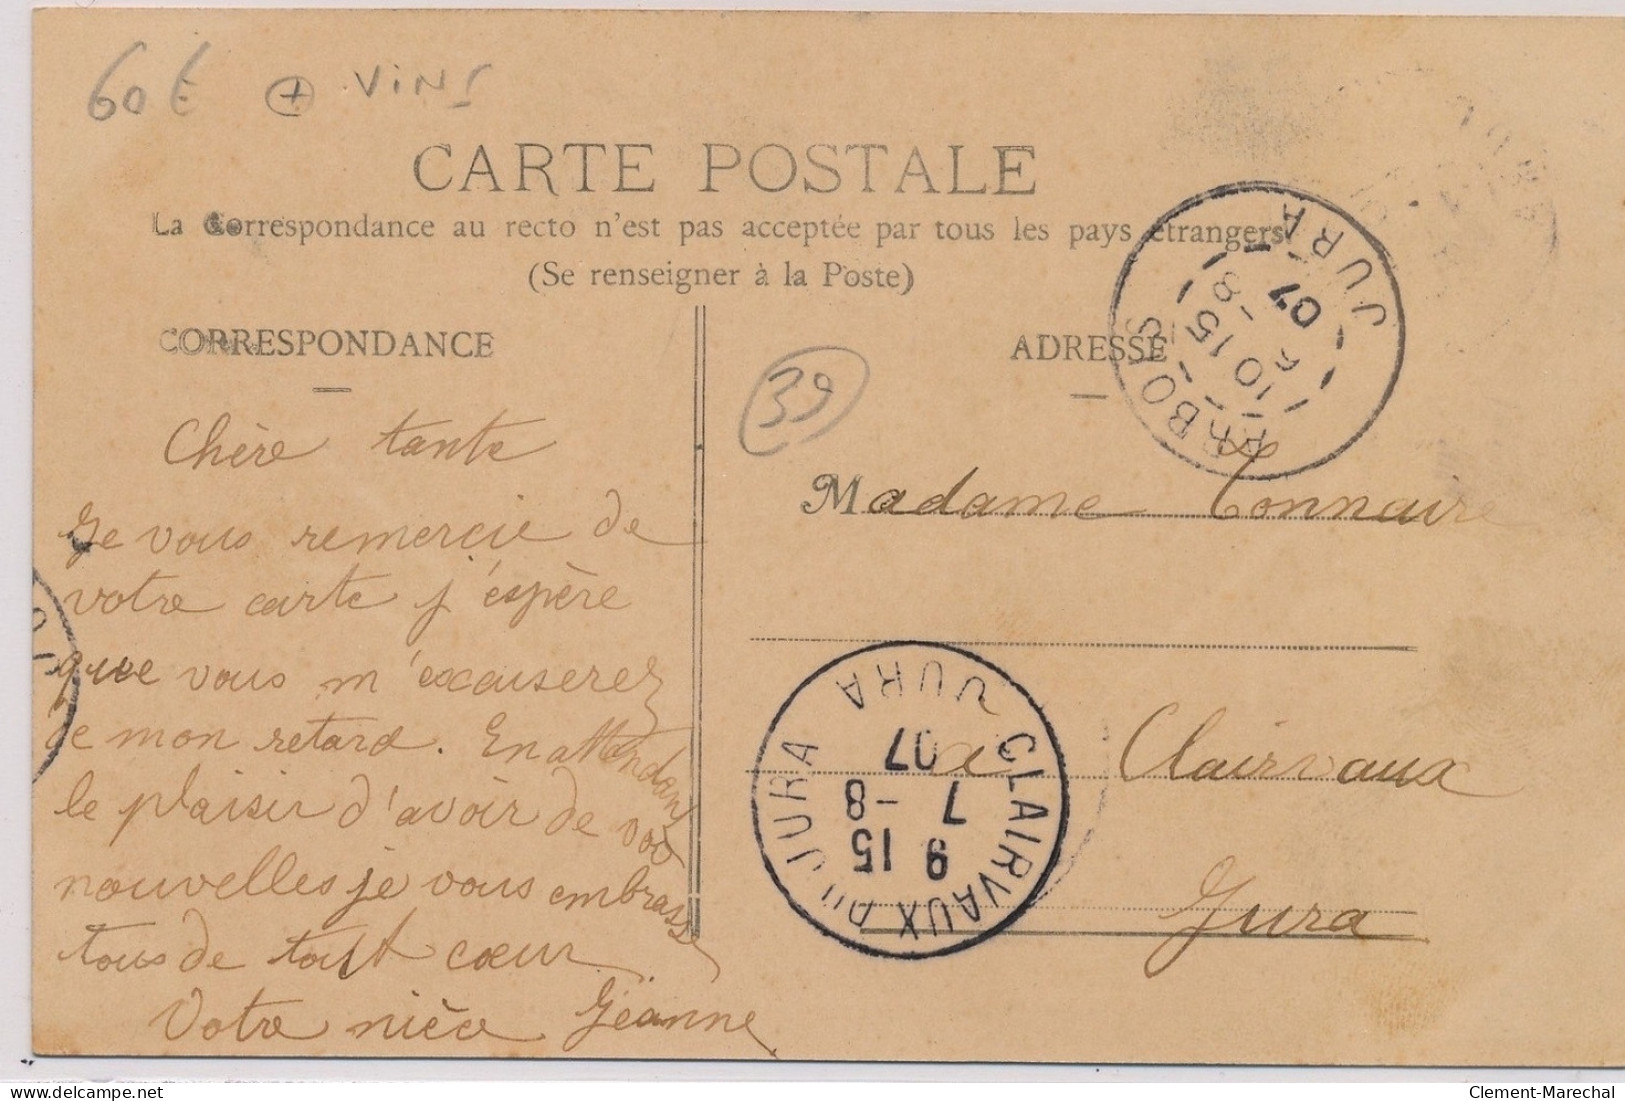 60 € + VINS
CARTE POSTALE
La Correspondance au recto n'est pas acceptée par tous les pays étrangers
(Se renseigner à la Poste)
CORRESPONDANCE
Chère tante
Je vous remercie de
votre carte j'éspère
que vous m'excuserez
de mon retard. En attendant
le plaisir d'avoir de vos
nouvelles je vous embrasse
tous de tout cœur
Votre nièce Jeanne
39
ADRESSE
ARBOIS JURA
10 15
6 -8
07
Madame Tonnaire
à Clairvaux
Jura
CLAIRVAUX DU JURA JURA
9 15
7 -8
07
Clement-Marechal